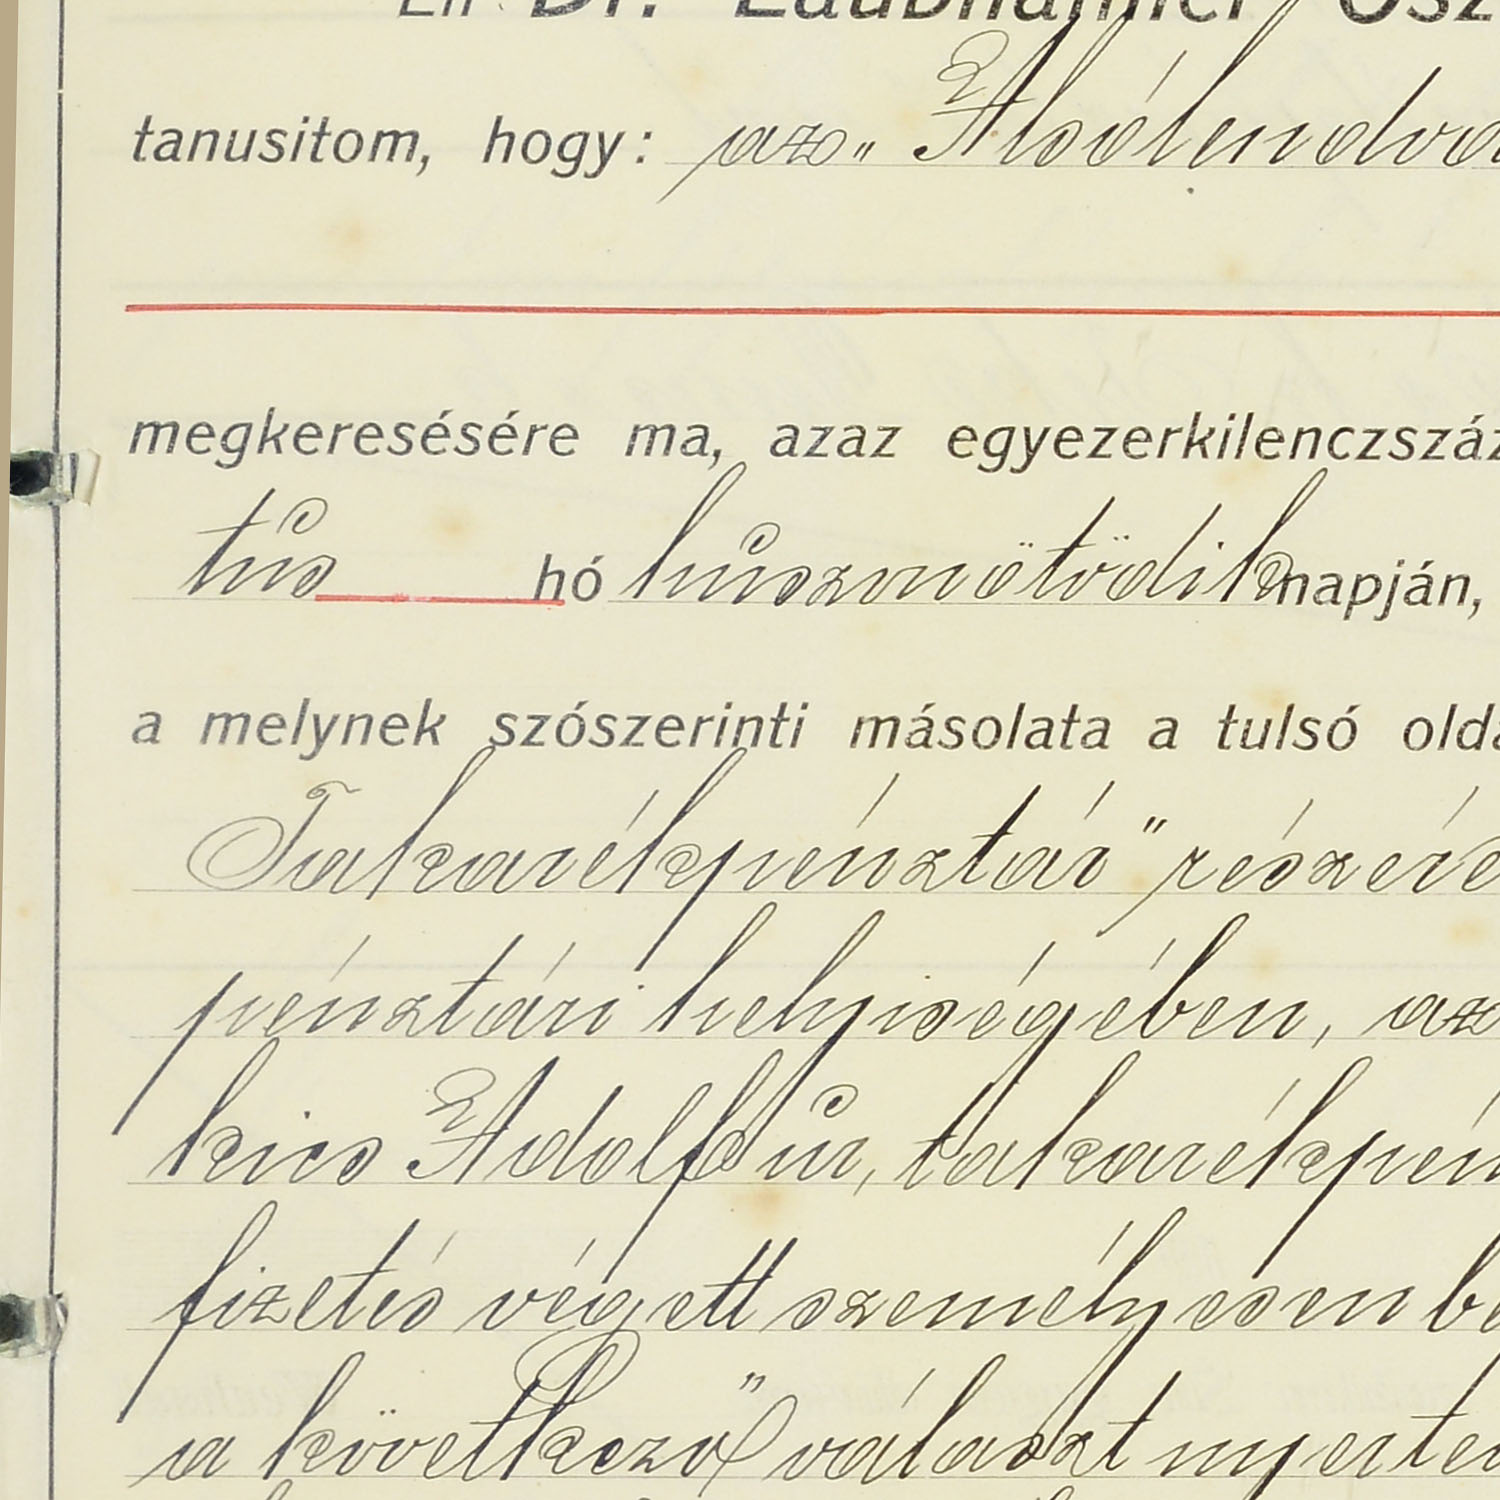 Én Dr. Laubhaimer Osz
tanusitom, hogy: az „Alsólendva
megkeresésére ma, azaz egyezerkilenczszáz
tús hó húszonötödik napján,
a melynek szószerinti másolata a tulsó olda
Takarékpénztár" részére
pénztári helyiségében, az
kics Adolf úr, takarékpén
fizetés végett személyesen be
a következő választ nyerte